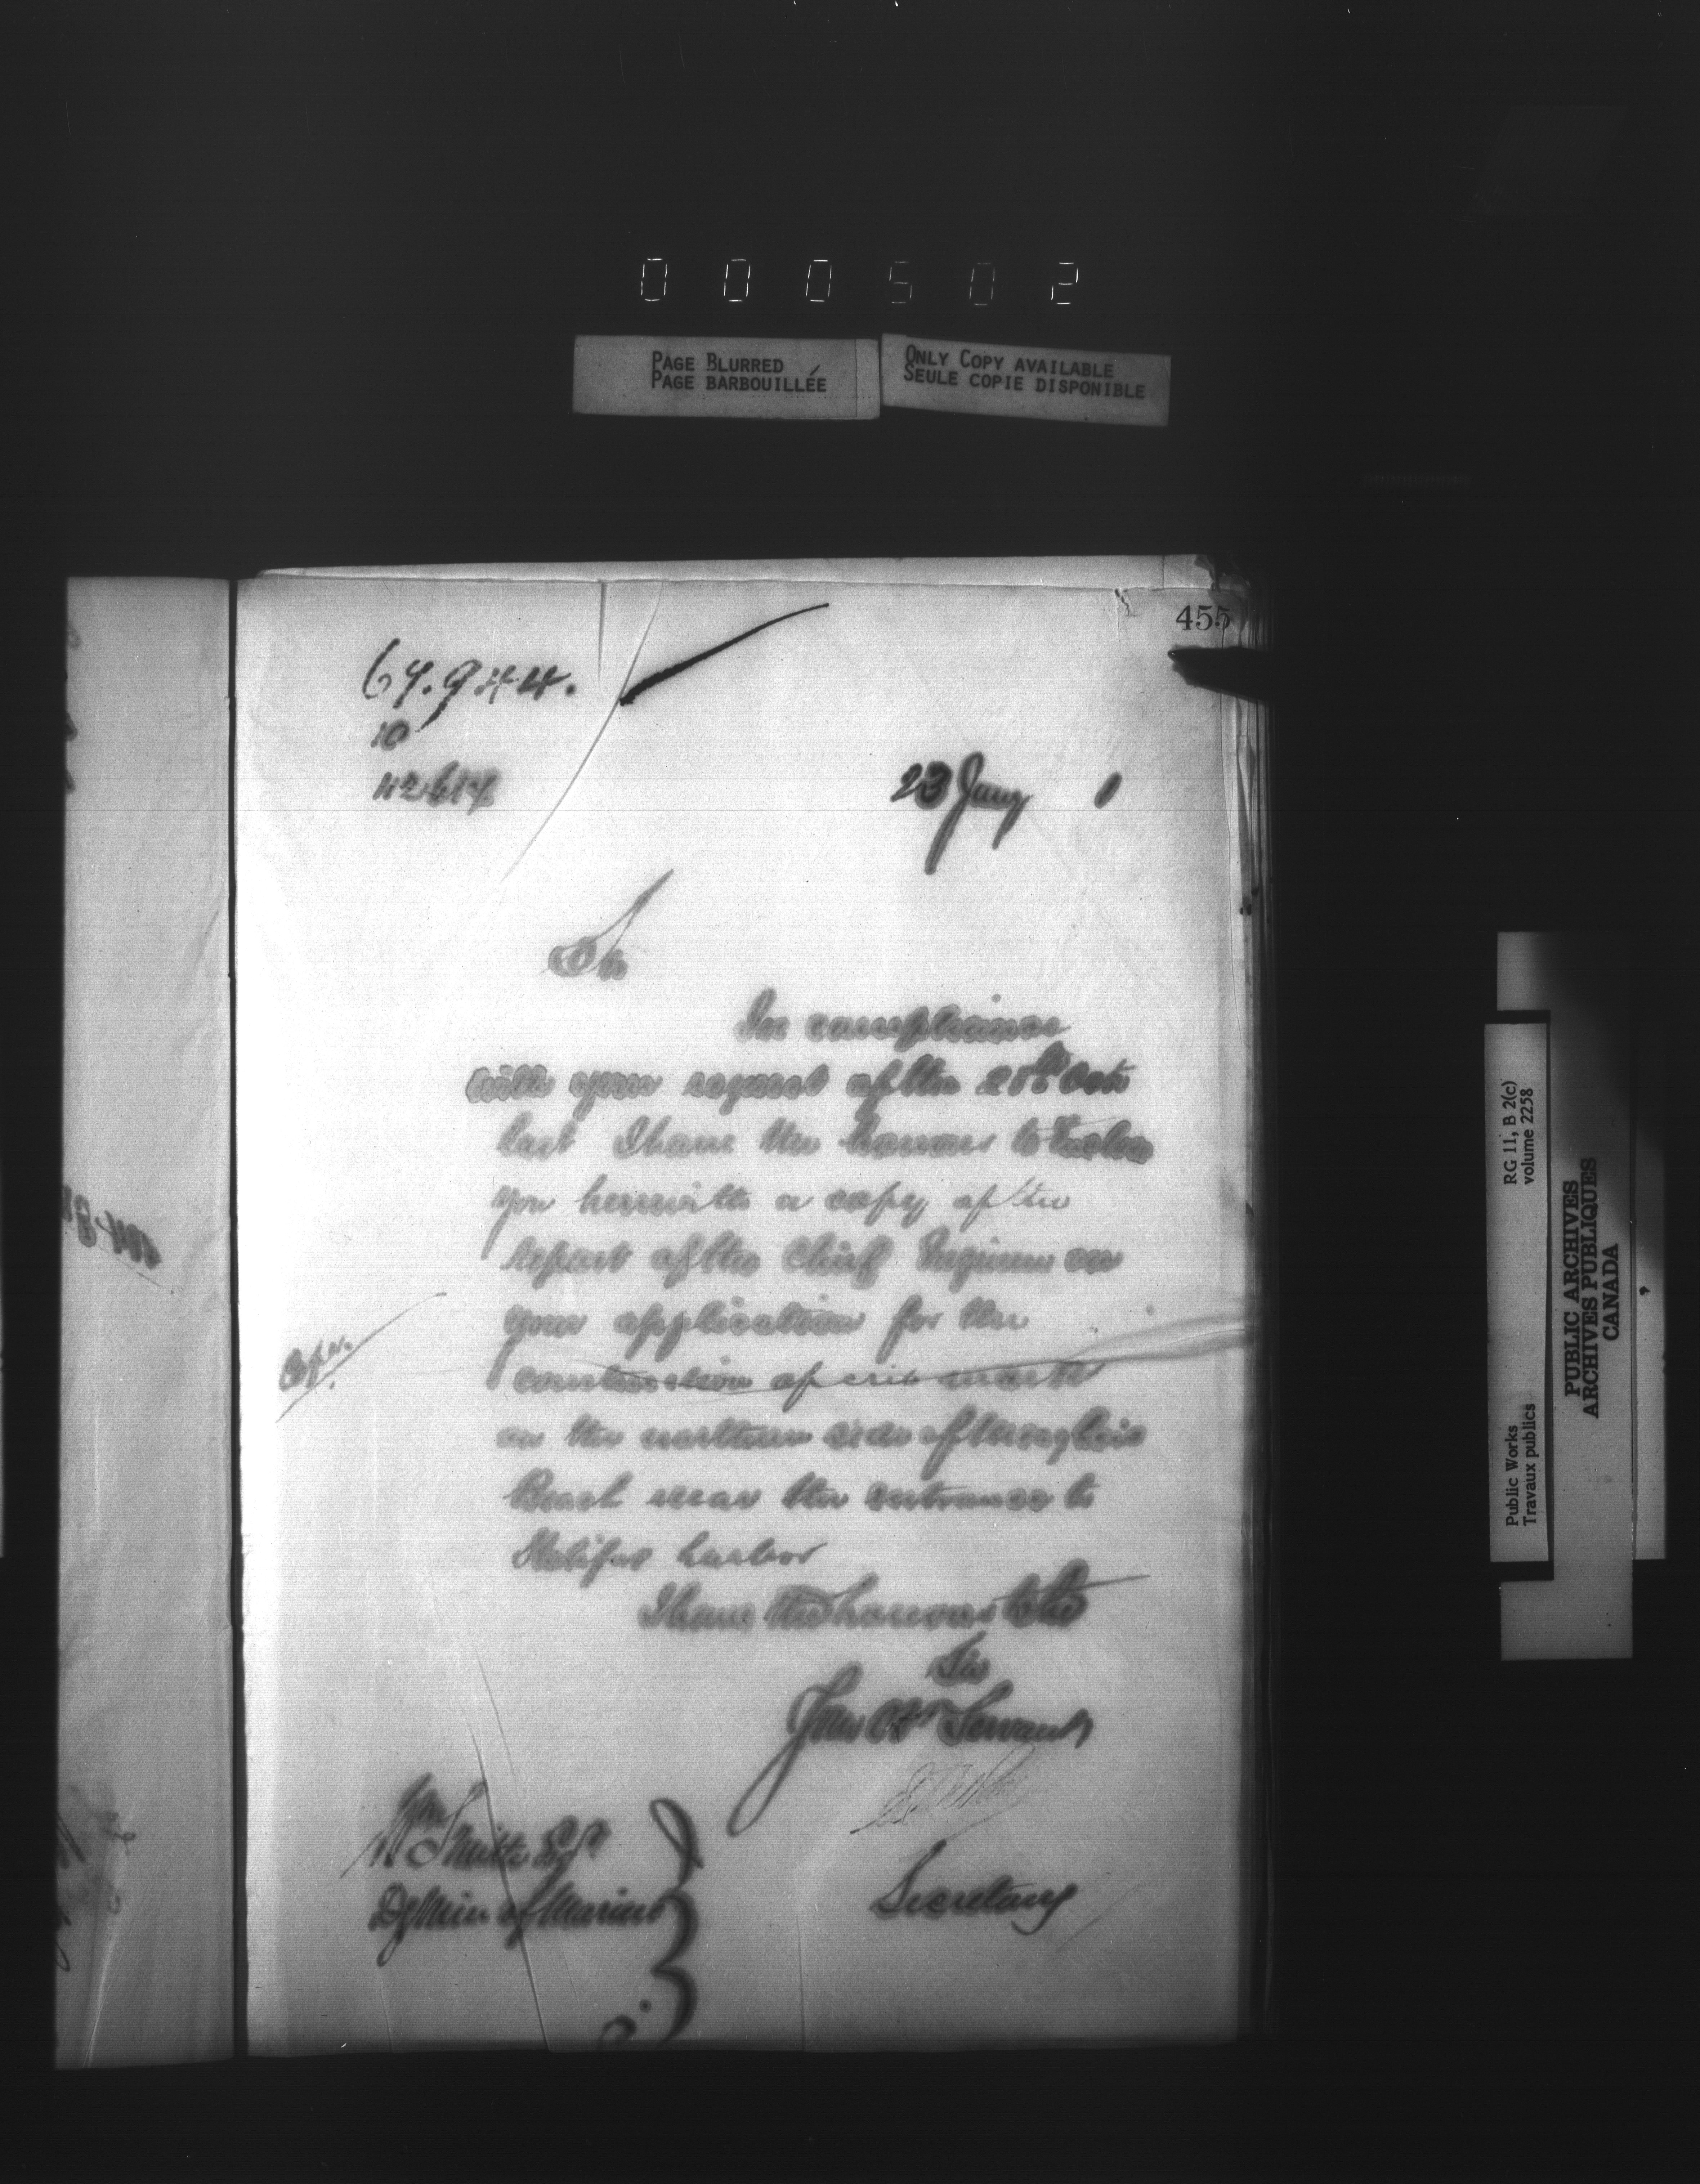 000502
PAGE BLURRED
PAGE BARBOUILLÉE
ONLY COPY AVAILABLE
SEULE COPIE DISPONIBLE
455
67.944.
10
23 Jany 1
Sir
In compliance
with your request of the 20th Octr
last I have the honour to Enclose
you herewith a copy of the
report of the Chief Engineer on
your application for the
construction of crib work
on the northern side of
Beach near the entrance to
Halifax harbor
I have the honour to be
Sir
Your Obt Servant
Secretary
Wm Smith Esqr
Dy Min of Marine
RG 11, B 2(c)
volume 2258
Public Works
Travaux publics
PUBLIC ARCHIVES
ARCHIVES PUBLIQUES
CANADA